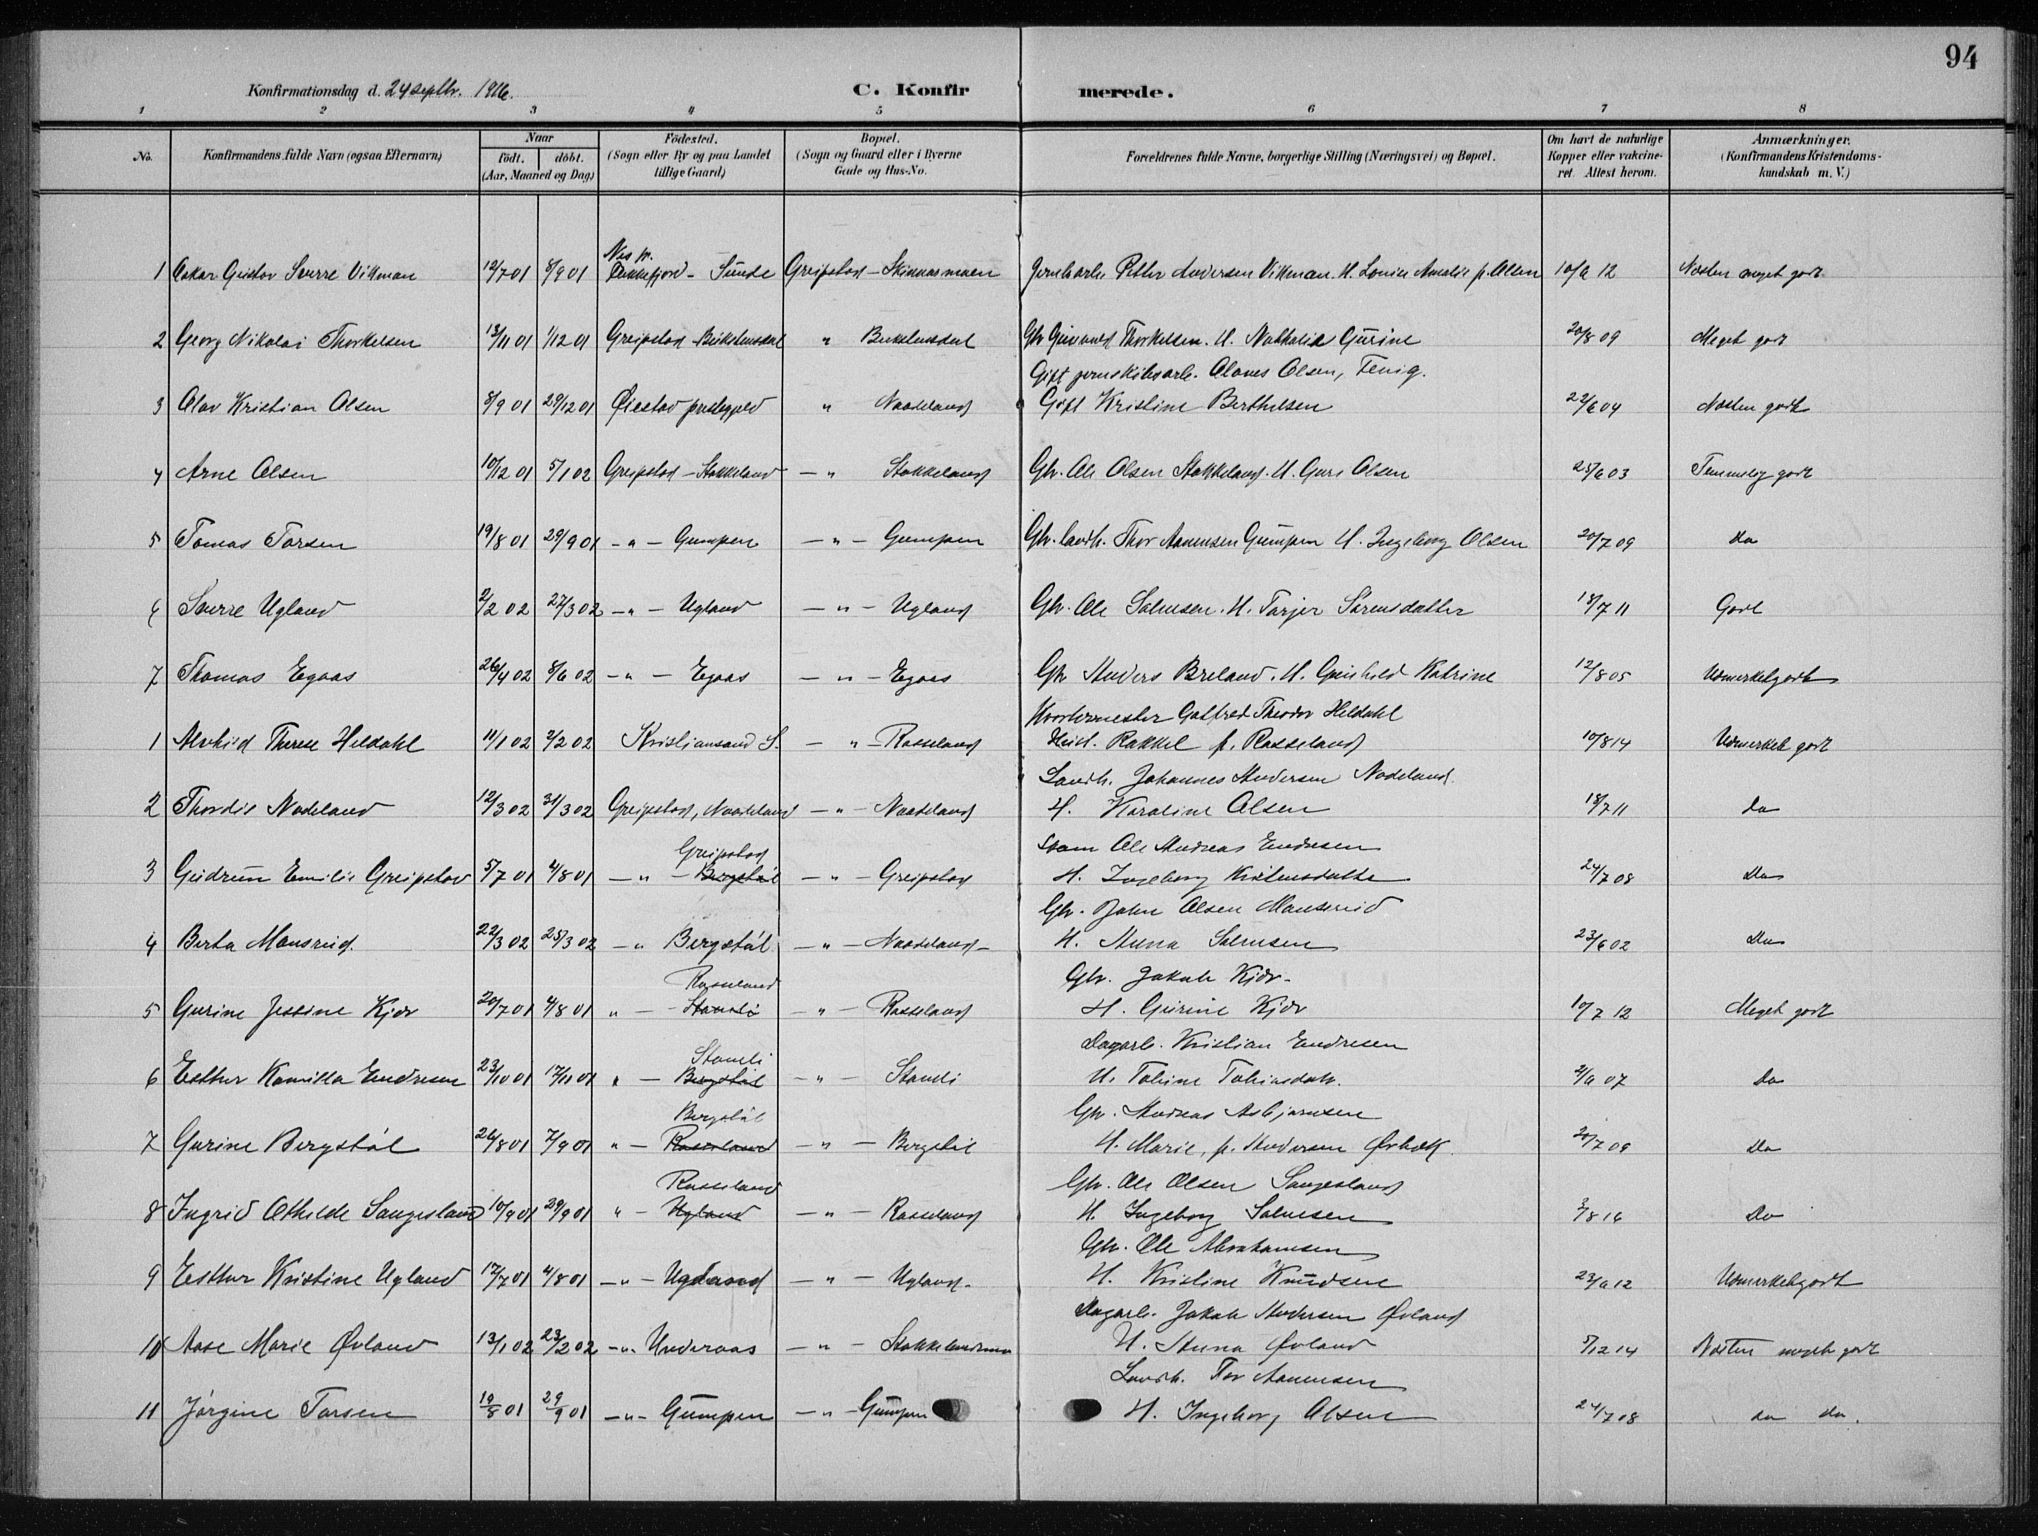 94
Konfirmationsdag d. 24 septbr. 1916.
C. Konfirmerede.
1 2 3 4 5 6 7 8
No. Konfirmandens fulde Navn (ogsaa Efternavn) Naar födt. döbt. (Aar, Maaned og Dag) Födested. (Sogn eller By og paa Landet tillige Gaard) Bopæl. (Sogn og Gaard eller i Byerne Gade og Hus-No. Forældrenes fulde Navne, borgerlige Stilling (Næringsvei) og Bopæl. Om havt de naturlige Kopper eller vakcineret. Attest herom. Anmærkninger. (Konfirmandens Kristendomskundskab m. V.)
Nes pr.
1 Oskar Gustav Sverre Vikman 12/7 01 8/9 01 Flekkefjord - Sunde Greipstad - Skinnarmoen Jernbarb. Petter Andersen Vikman. H. Lovise Amalie f. Olsen 10/9 12 Næsten meget godt
2 Georg Nikolai Thorkelsen 13/11 01 1/12 01 Greipstad - Birkelunsdal " Birkelunsdal Gbr. Gunvald Thorkelsen. H. Nathalie Gurine 20/8 09 Meget godt
Gift jernskibsarb. Alanes Olsen, Tenig.
3 Olav Kristian Olsen 8/9 01 29/12 01 Øiestad prestegjeld " Nodeland Gift Kristine Berthelsen 22/6 04 Næsten godt
4 Arne Olsen 10/12 01 5/1 02 Greipstad - Stokkeland — " Stokkeland Gbr. Ole Olsen Stokkeland. H. Guro Olsen 25/6 03 Temmelig godt
5 Tomas Torsen 19/8 01 29/9 01 — " — Gumpen — " — Gumpen Gbr. landh. Thor Aanensen Gumpen H. Ingeborg Olsen 20/7 09 Do
6 Sverre Ugland 2/2 02 27/3 02 — " — Ugland — " — Ugland Gbr. Ole Salvesen. H. Tarjer Sørensdatter 18/7 11 Godt
7 Thomas Egaas 26/4 02 8/6 02 — " — Egaas — " — Egaas Gbr Anders Breland. H. Gunhild Katrine 12/8 05 Udmerketgodt
Kvartermester Gotfred Theodor Heldahl
1 Alvhild Therese Heldahl 11/1 02 2/2 02 Kristiansand S. — " — Rosseland Hust. Rakkel f. Rosseland 10/8 14 Udmerket godt
Landh. Johannes Andersen Nodeland.
2 Thordis Nodeland 12/3 02 31/3 02 Greipstad, Nodeland — " — Nodeland H. Karoline Olsen 18/7 11 Do
Greipstad Ole Andreas Endresen
3 Gudrun Emilie Greipstad 5/7 01 4/8 01 — " — Bergstøl — " — Greipstad H. Ingeborg Kristensdatter 24/7 08 Do
Gbr. John Olsen Monsrud
4 Berta Monsrud. 22/3 02 25/3 02 — " Bergstøl — " — Nodeland H. Anna Salvesen 23/6 02 Do
Rosseland Gbr. Jakob Kjær
5 Gurine Jessine Kjær 20/7 01 4/8 01 " — Stomli — " — Rosseland H. Gurine Kjær 10/7 12 Meget godt
Stomli Dagarb. Kristian Endresen
6 Esther Kamilla Endresen 23/10 01 17/11 01 " — Bergstøl — " — Stomli H. Tobine Tobiasdatr. 2/9 07 Do
Bergstøl Gbr. Andreas Asbjørnsen
7 Gurine Bergstøl 26/8 01 7/9 01 " — Rosseland — " — Bergstøl H. Marie, f. Andersen Øvbæk 20/7 09 Do
Rosseland Gbr. Ole Olsen Saugesland
8 Ingrid Othilde Saugesland 10/9 01 29/9 01 " — Ugland — " — Rosseland H. Ingeborg Salvesen 3/8 16 Do
Gbr. Ole Abrahamsen
9 Esther Kristine Ugland 17/7 01 4/8 01 — " — Ugland — " — Ugland. H. Kristine Knudsen 23/9 12 Udmerketgodt
Dagarb. Jakob Andersen Øvland
10 Aase Marie Øvland 13/1 02 23/2 02 — " — Underaas — " — Stokkelandsmo H. Anna Øvland 5/12 14 Næsten meget godt
Landh. Tor Aanensen
11 Jørgine Torsen 19/8 01 29/9 01 — " — Gumpen — " — Gumpen H. Ingeborg Olsen 24/7 08 do do.